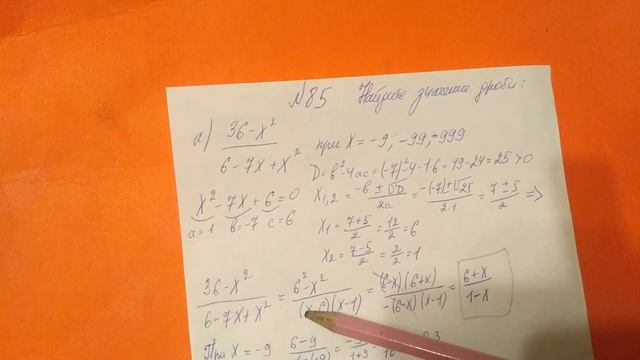 №85 Найдите значение дроби:
а) (36-x²)/(6-7x+x²) при x=-9; -99; -999
D=b²-4ac=(-7)²-4·1·6=49-24=25>0
x²-7x+6=0 x₁,₂=(-b±√D)/2a=(-(-7)±√25)/(2·1)=(7±5)/2 ⇒
a=1 b=-7 c=6
x₁=(7+5)/2=12/2=6
x₂=(7-5)/2=2/2=1
(36-x²)/(6-7x+x²)=(6²-x²)/((x-6)(x-1))=((6-x)(6+x))/(-(6-x)(x-1))=(6+x)/(1-x)
При x=-9 (6-9)/